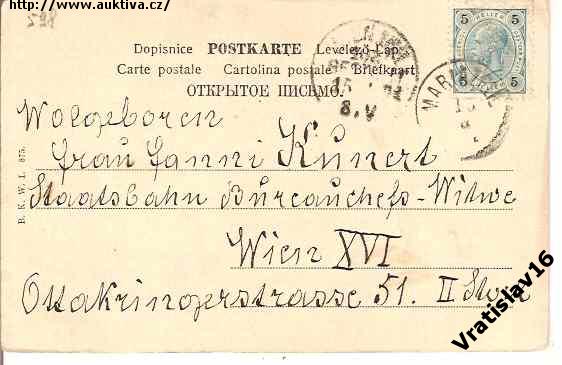 http://www.auktiva.cz/
Dopisnice POSTKARTE Levelező-Lap
Carte postale Cartolina postale Briefkaart
ОТКРЫТОЕ ПИСЬМО.
5 HELLER 5
5 5
8.V
MARIA
Wolgeboren
Frau Fanni Kunert
Staatsbahn Bureauchefs-Witwe
Wien XVI
Ottakringerstrasse 51. II Stock
B. K. W. I. 875.
Vratislav16